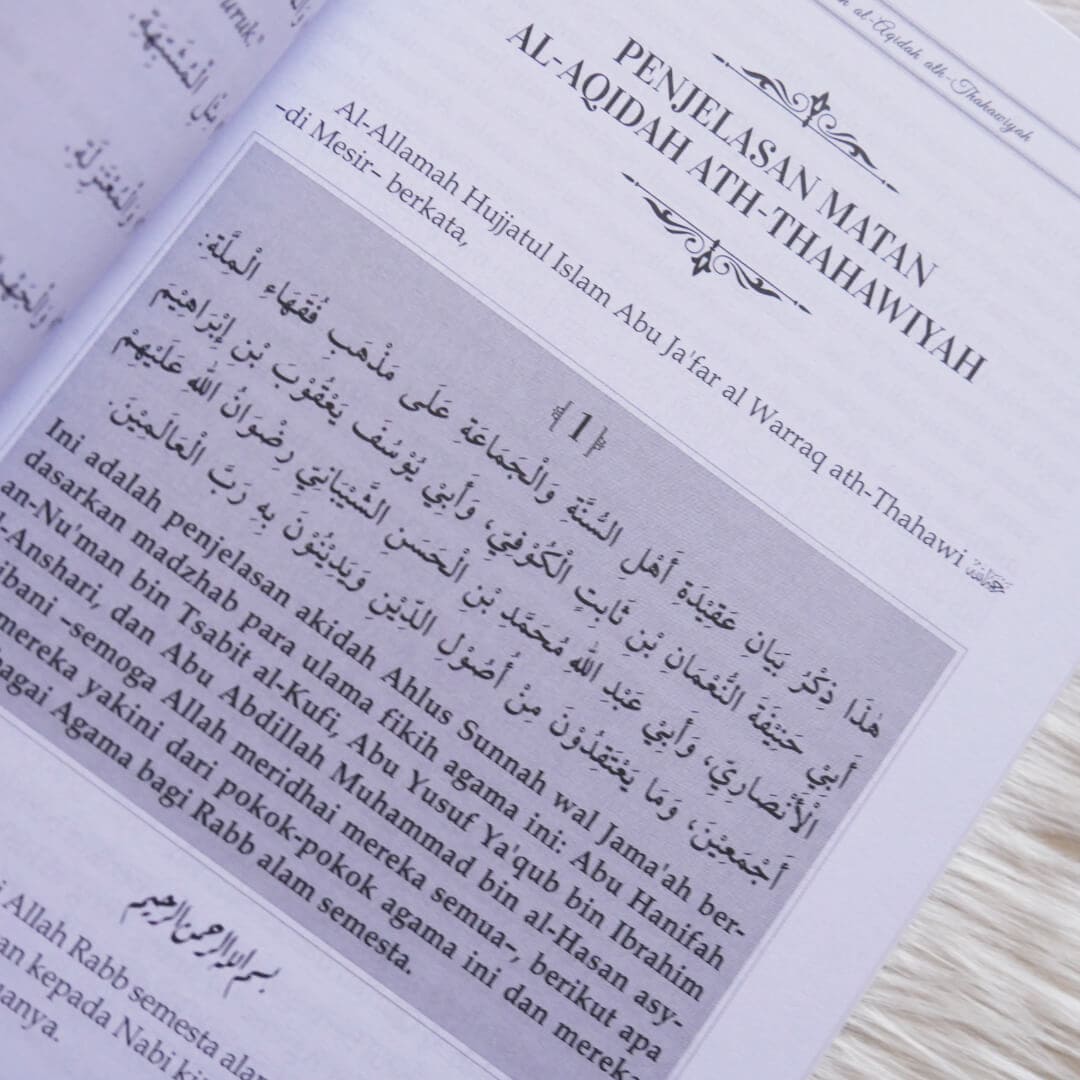 uruk.'
الْمُشَبِّهَةِ.
وَالْمُعْتَزِلَةِ.
al-Aqidah ath-Thahawiyah
PENJELASAN MATAN
AL-AQIDAH ATH-THAHAWIYAH
Al-Allamah Hujjatul Islam Abu Ja'far al Warraq ath-Thahawi
–di Mesir– berkata,
1
هٰذَا ذِكْرُ بَيَانِ عَقِيْدَةِ أَهْلِ السُّنَّةِ وَالْجَمَاعَةِ عَلَى مَذْهَبِ فُقَهَاءِ الْمِلَّةِ:
أَبِيْ حَنِيْفَةَ النُّعْمَانِ بْنِ ثَابِتٍ الْكُوْفِيِّ، وَأَبِيْ يُوْسُفَ يَعْقُوْبَ بْنِ إِبْرَاهِيْمَ
الْأَنْصَارِيِّ، وَأَبِيْ عَبْدِ اللهِ مُحَمَّدِ بْنِ الْحَسَنِ الشَّيْبَانِيِّ رِضْوَانُ اللهِ عَلَيْهِمْ
أَجْمَعِيْنَ، وَمَا يَعْتَقِدُوْنَ مِنْ أُصُوْلِ الدِّيْنِ وَيَدِيْنُوْنَ بِهِ رَبَّ الْعَالَمِيْنَ.
Ini adalah penjelasan akidah Ahlus Sunnah wal Jama'ah ber-
dasarkan madzhab para ulama fikih agama ini: Abu Hanifah
an-Nu'man bin Tsabit al-Kufi, Abu Yusuf Ya'qub bin Ibrahim
l-Anshari, dan Abu Abdillah Muhammad bin al-Hasan asy-
ibani –semoga Allah meridhai mereka semua–, berikut apa
mereka yakini dari pokok-pokok agama ini dan mereka
bagai Agama bagi Rabb alam semesta.
بسم الله الرحمن الرحيم
i Allah Rabb semesta alam
an kepada Nabi
anya.